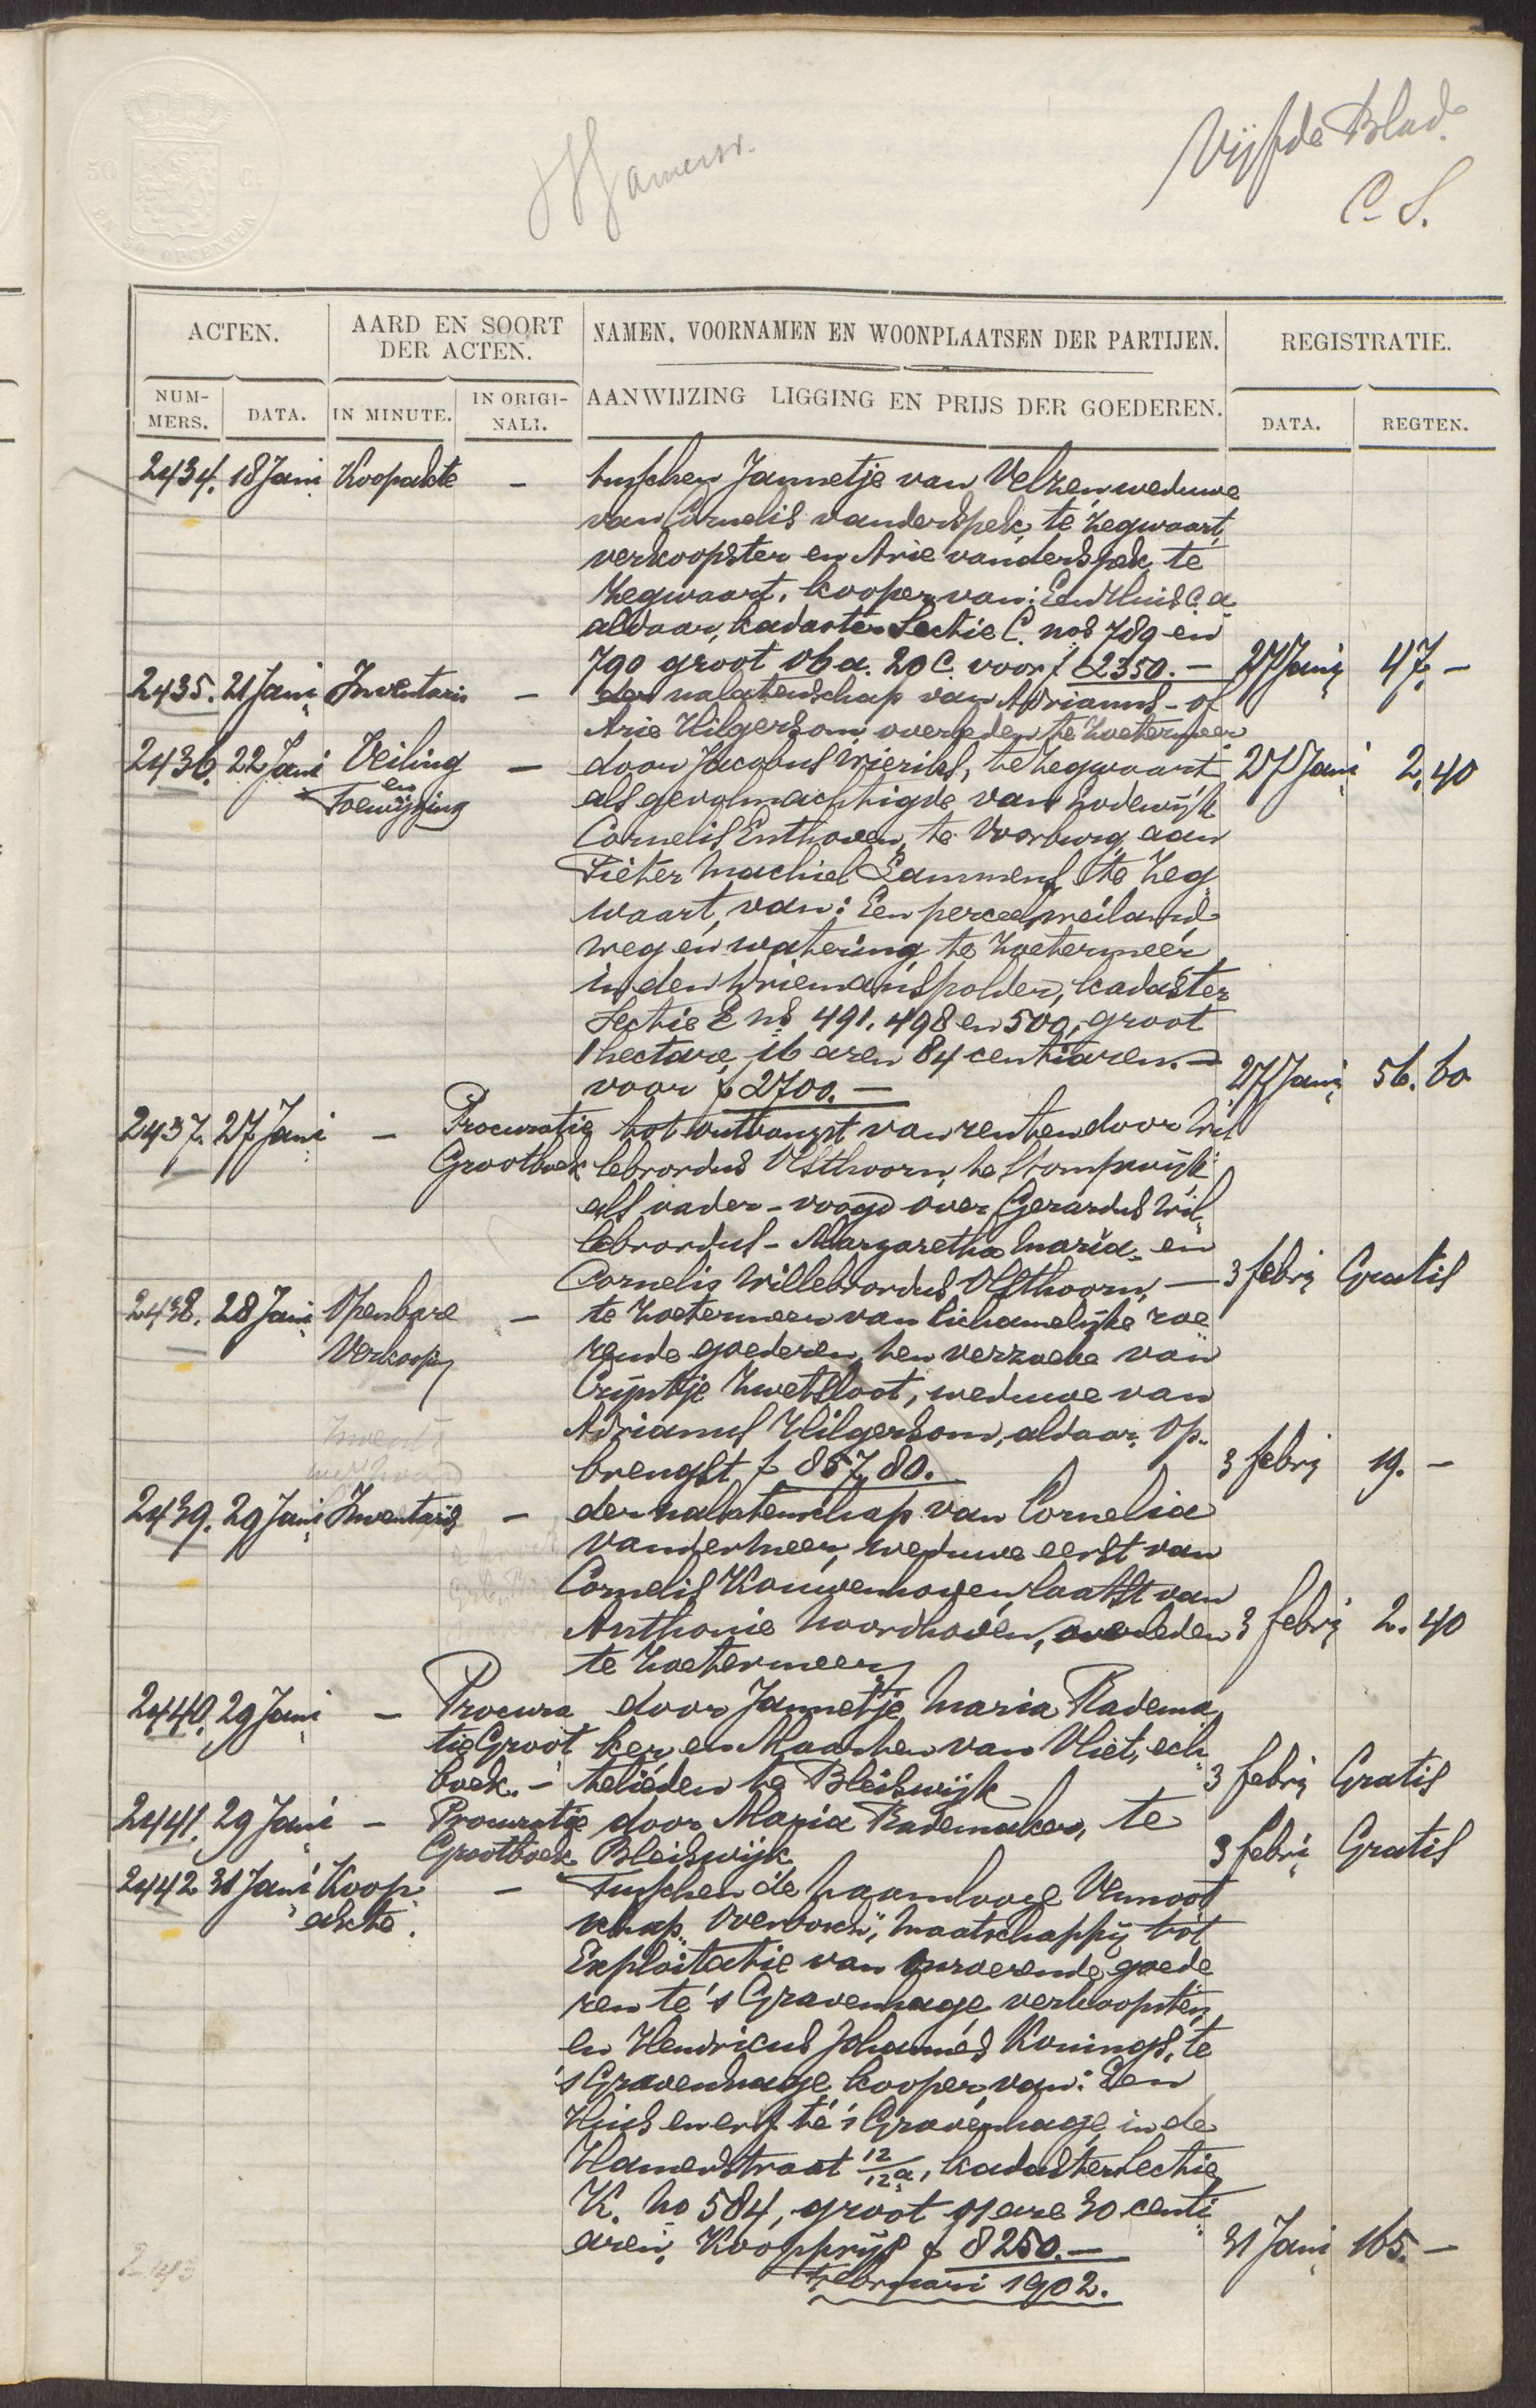 Vijfde Blad.
C. S.
50 C
ACTEN.
AARD EN SOORT DER ACTEN.
NAMEN, VOORNAMEN EN WOONPLAATSEN DER PARTIJEN.
REGISTRATIE.
NUM-MERS.
DATA.
IN MINUTE.
IN ORIGI-NALI.
AANWIJZING LIGGING EN PRIJS DER GOEDEREN.
DATA.
REGTEN.
2434. 18 Jani Koopakte - tusschen Jannetje van Velzen, weduwe
van Cornelis van der Spek, te Zegwaart,
verkoopster en Arie van der Spek te
Zegwaart, kooper van: Een Huis c.a.
aldaar, kadaster Sectie C. nos 789 en
790 groot 06 a. 20 c. voor f 2350.- 27 Jani 47.-
2435. 21 Jani Inventaris - der nalatenschap van Adrianus - of
Arie Hilgersom overleden te Zoetermeer 27 Jani 2.40
2436. 22 Jani Veiling en Toewijzing - door Jacobus Wieriks, te Zegwaart
als gevolmachtigde van Lodewijk
Cornelis Enthoven, te Voorburg, aan
Pieter Machiel Lammens, te Zeg
waart, van: Een perceel weiland
weg en watering te Zoetermeer
in den Driemanspolder, kadaster
Sectie E ns 491. 498 en 500, groot
1 hectare, 16 aren 84 centiaren.-
voor f 2700.- 27 Jani 56.60
2437. 27 Jani - Procuratie tot ontvangst van renten door Wil
Grootboek lebrordus Olsthoorn, te Stompwijk
als vader-voogd over Gerardus Wil-
lebrordus - Margaretha Maria - en
Cornelis Willebrordus Olsthoorn - 3 febri Gratis
2438. 28 Jani Openbare - te Zoetermeer van lichamelijke roe
Verkoop rende goederen, ten verzoeke van
Crijntje Zwetsloot, weduwe van
Adrianus Hilgersom, aldaar. Op-
brengst f 857,80. 3 febri 19.-
2439. 29 Jani Inventaris - der nalatenschap van Cornelia
van der Meer, weduwe eerst van
Cornelis Kouwenhoven, laatst van
Anthonie Noordhoven, overleden 3 febri 2.40
te Zoetermeer
2440. 29 Jani - Procura door Jannetje Maria Radema
tie Groot ker, en Maarten van Vliet, ech
boek.- telieden te Bleiswijk 3 febri Gratis
2441. 29 Jani - Procuratie door Maria Rademaker, te
Grootboek Bleiswijk 3 febri Gratis
2442 31 Jani Koop - Tusschen de Naamlooze Vennoot
akte. schap "Overbosch", Maatschappij tot
Exploitatie van onroerende goede
ren te 's Gravenhage verkoopster,
en Hendricus Johannes Konings, te
's Gravenhage kooper, van: Een
Huis en erf te 's Gravenhage, in de
Hamerstraat 12/12a, kadaster Sectie
K. No 584, groot 91 are 30 centi
aren. Koopprijs f 8250.- 31 Jani 165.-
Februari 1902.
2443